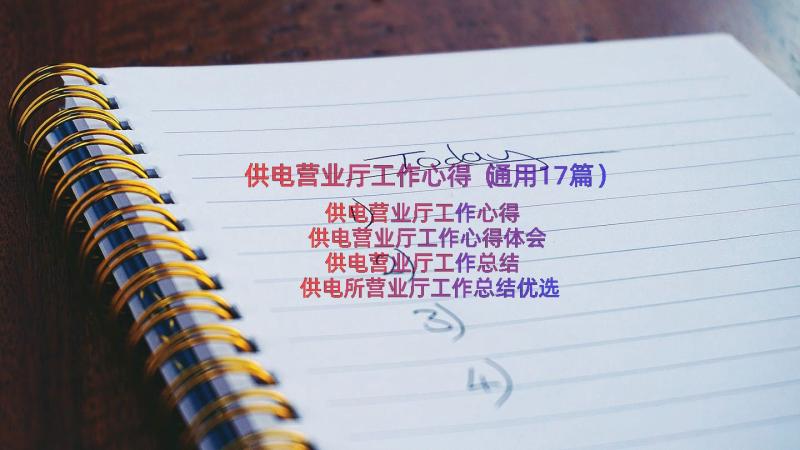 Today
供电营业厅工作心得（通用17篇）
1)
供电营业厅工作心得
供电营业厅工作心得体会
2)
供电营业厅工作总结
供电所营业厅工作总结优选
3)
4)